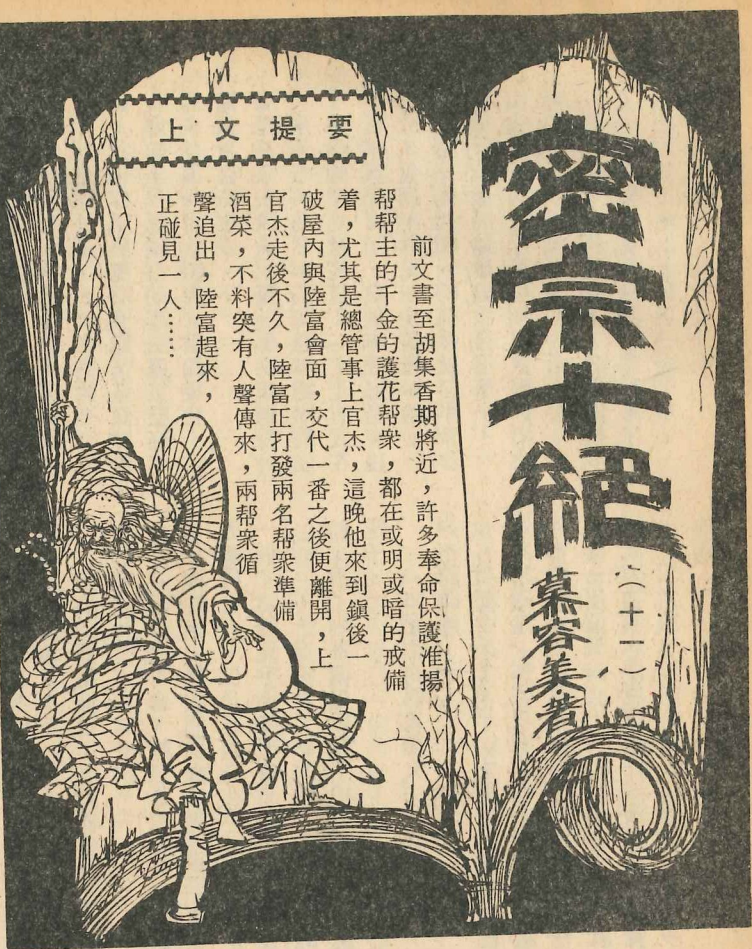 密宗十絕
（十一）
慕容美著
上文提要
前文書至胡集香期將近，許多奉命保護淮揚
帮帮主的千金的護花帮衆，都在或明或暗的戒備
着，尤其是總管事上官杰，這晚他來到鎭後一
破屋內與陸富會面，交代一番之後便離開，上
官杰走後不久，陸富正打發兩名帮衆準備
酒菜，不料突有人聲傳來，兩帮衆循
聲追出，陸富趕來，
正碰見一人……